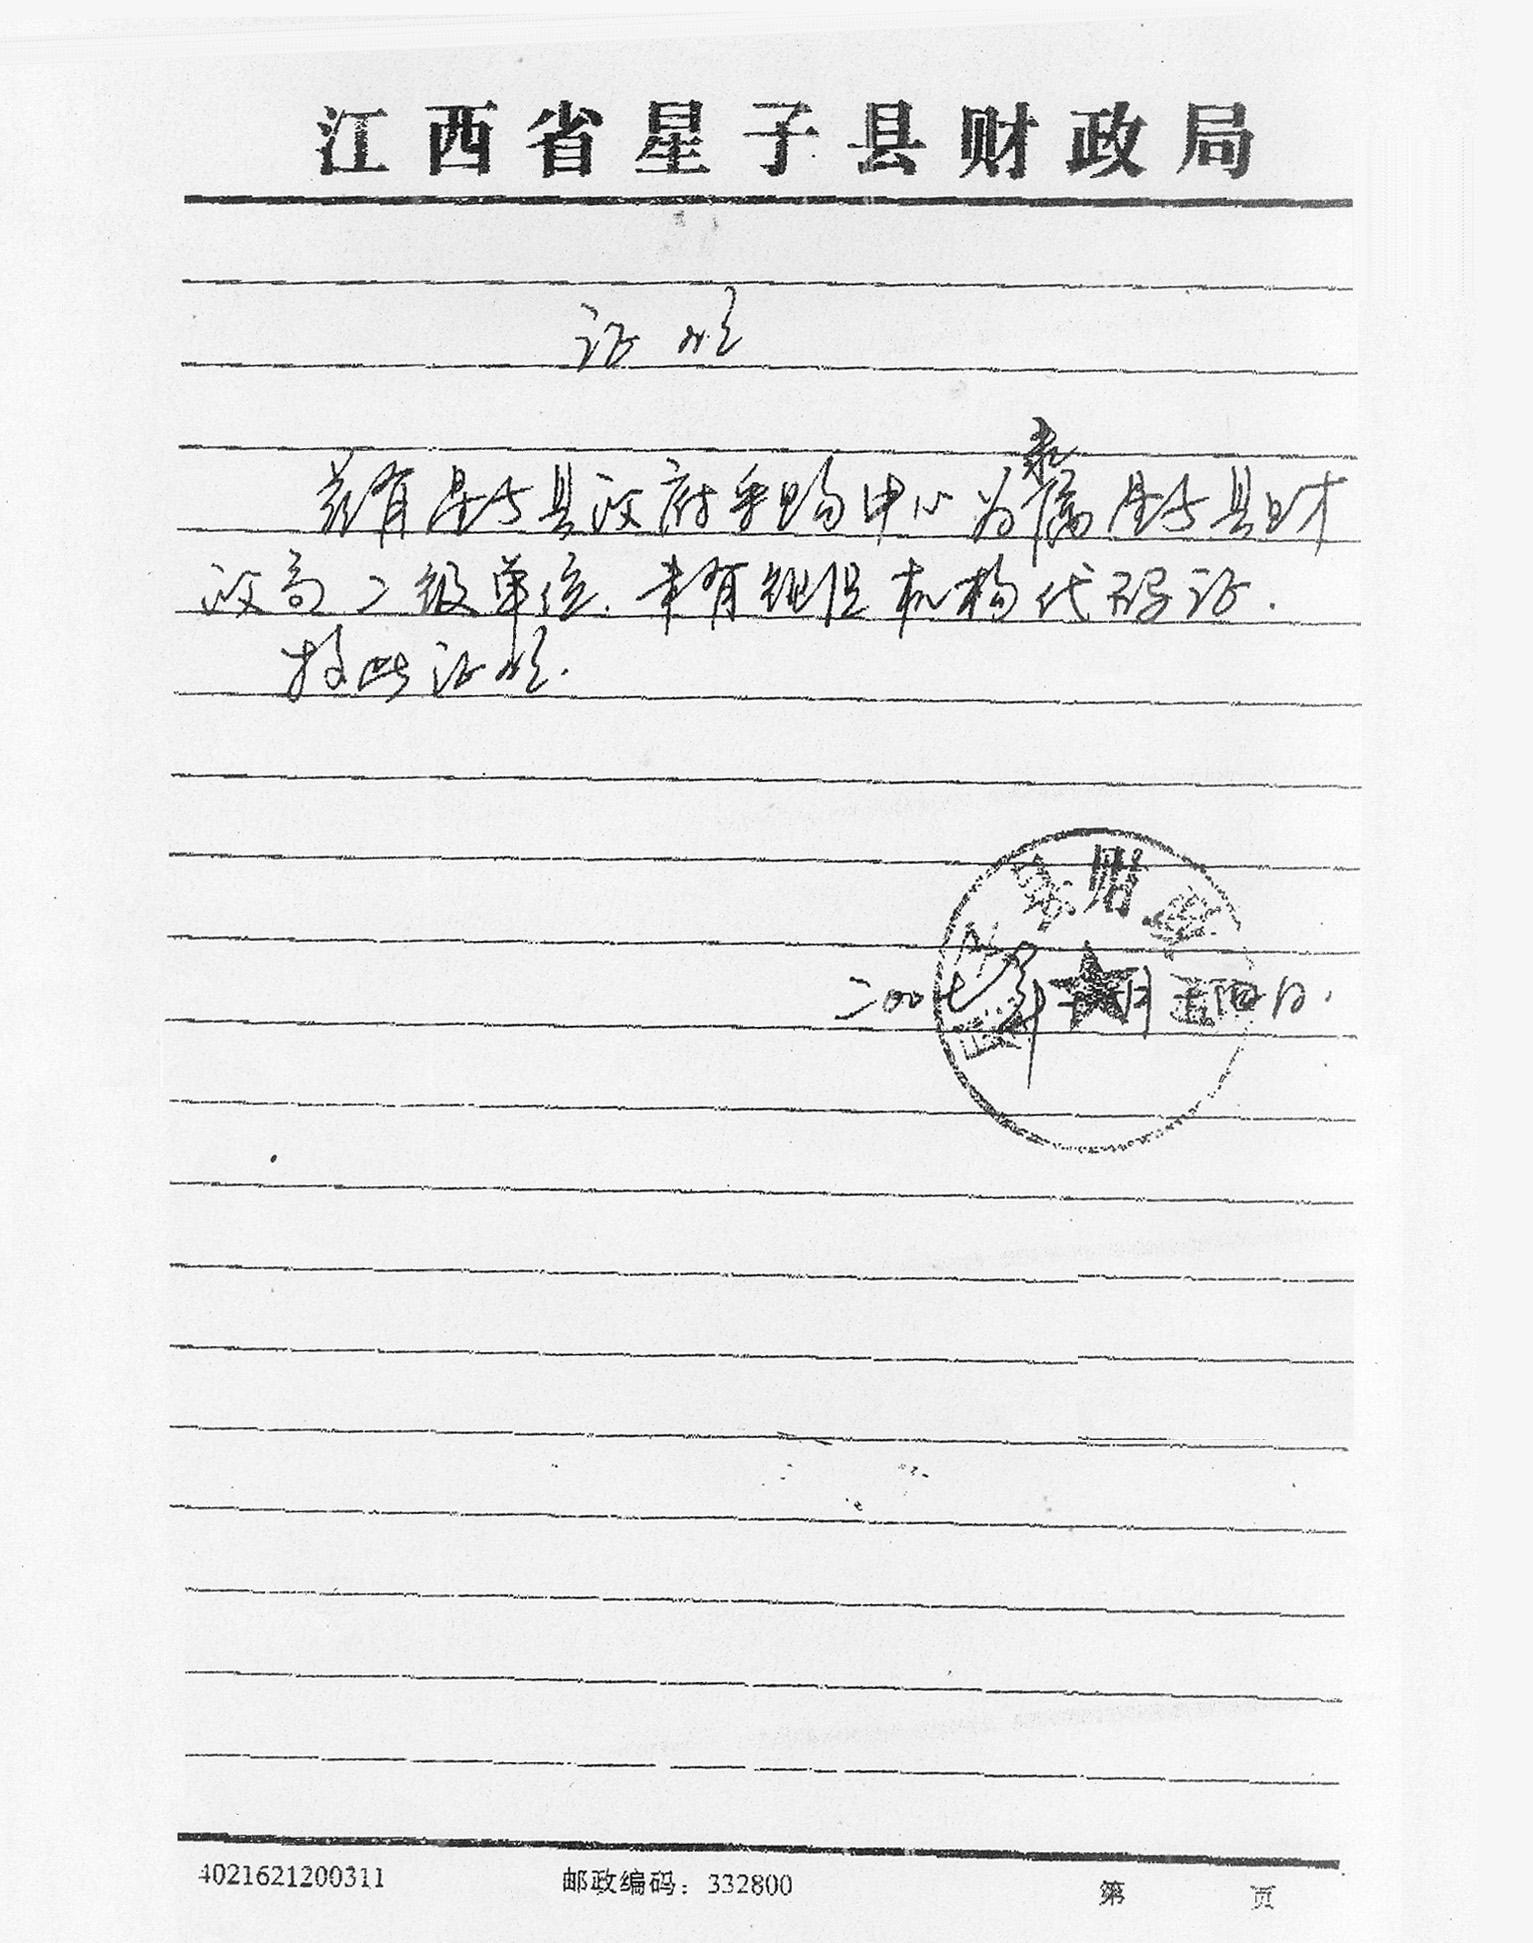 江西省星子县财政局
证明
兹有星子县政府采购中心为隶属星子县财
政局二级单位.未有组织机构代码证.
特此证明.
财
二00七年十月
日.
4021621200311 邮政编码：332800 第 页